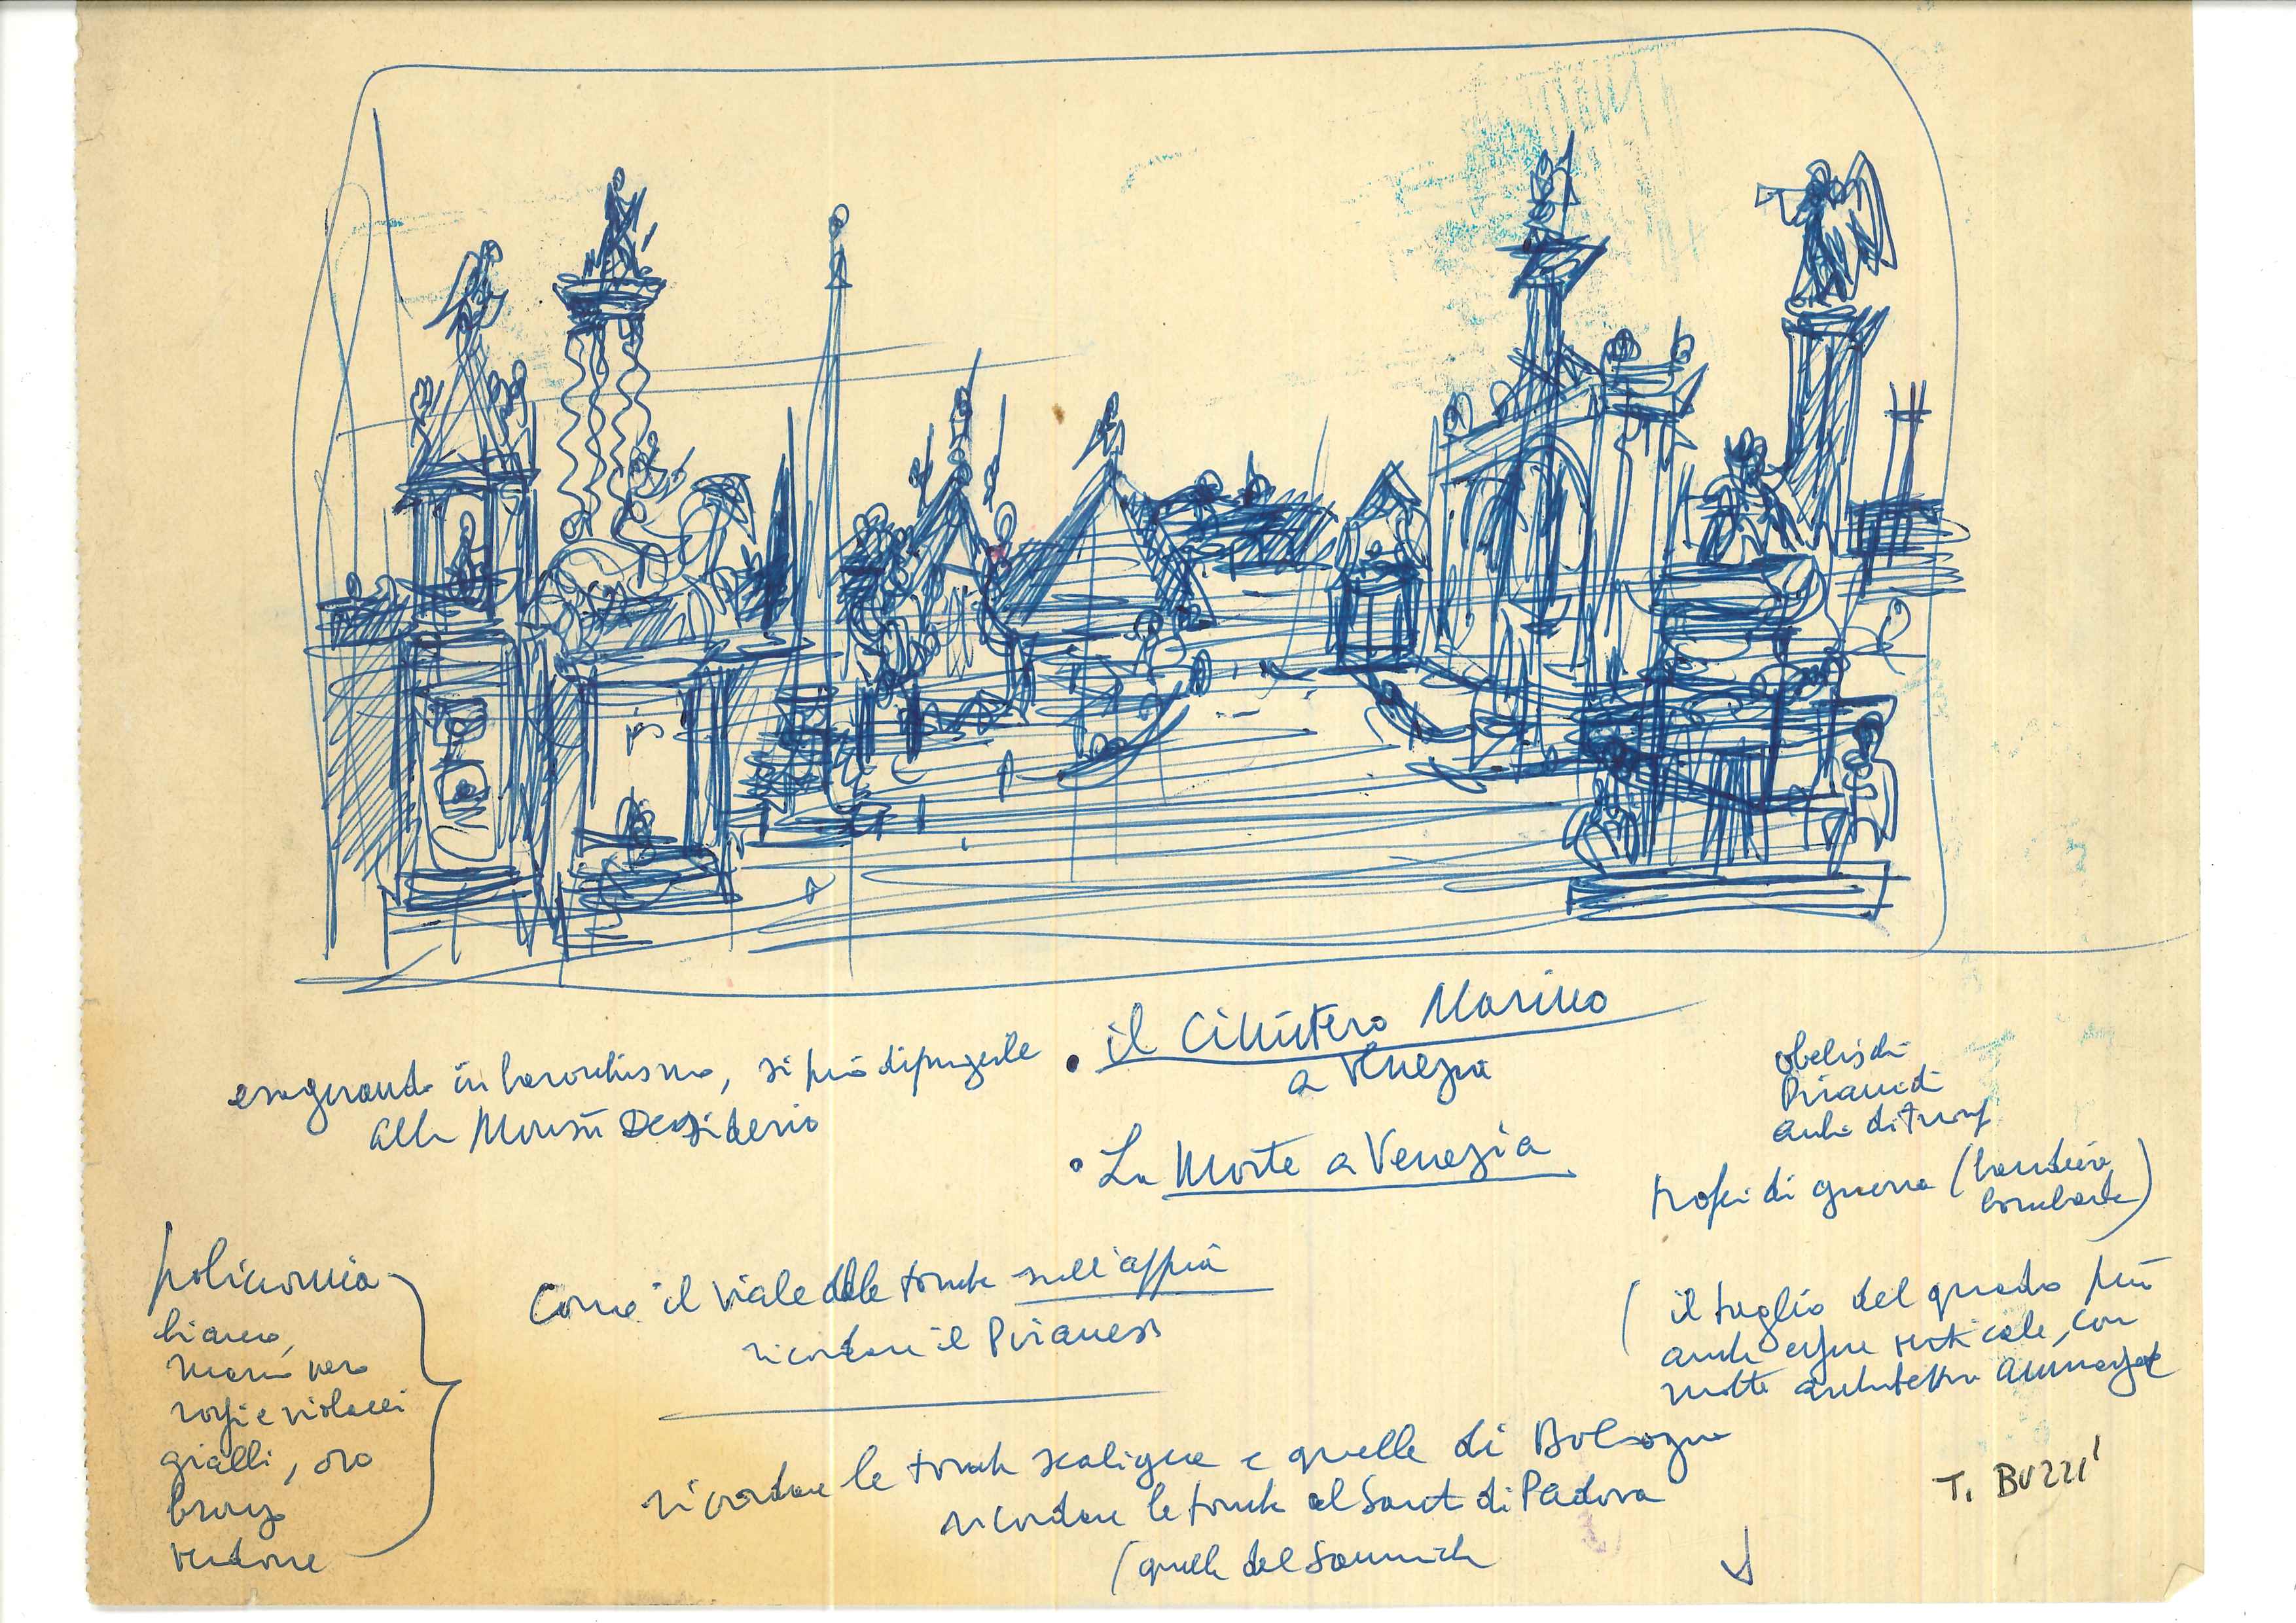 • il Cimitero Marino
a Venezia
esagerando in barocchismo, si può dipingerle
alla Monsù Desiderio
• La Morte a Venezia
obelischi
Piramidi
archi di trionf
trofei di guerra (bandiere,
bombarde)
policromia
bianco,
marmi vero
rossi e violacei
gialli, oro
bronzo
verdone
Come il viale delle tombe sull'appia
ricordare il Piranesi
(il taglio del quadro può
anche essere verticale, con
molte architetture ammazzate
ricordare le tombe scaligere e quelle di Bologna
ricordare le tombe al Santo di Padova
(quelle del Sanmicheli
T. BUZZI